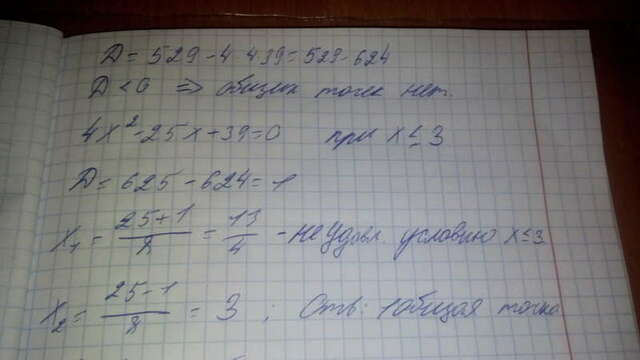 Д = 529 - 4 · 4 39 = 529 - 624
Д < 0 ⇒ общих точек нет.
4x² - 25x + 39 = 0 при x ≤ 3
Д = 625 - 624 = 1
x₁ = (25+1)/8 = 13/4 - не удовл. условию x ≤ 3
x₂ = (25-1)/8 = 3 ; Отв: 1 общая точка